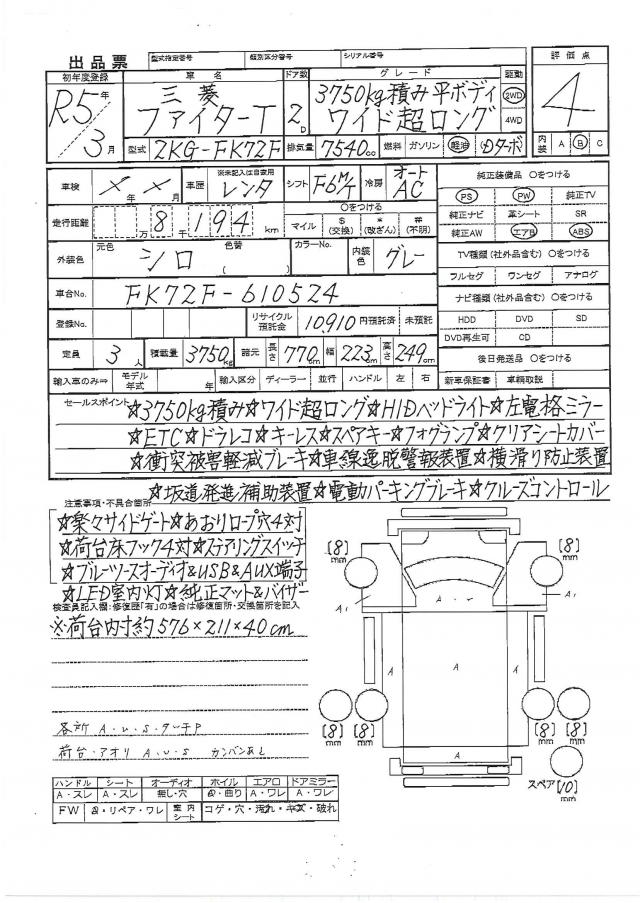 出品票 型式指定番号 類別区分番号 シリアル番号
初年度登録 車名 ドア数 グレード 駆動 評価点
R5年3月 三菱 ファイターT 2D 3750kg積み平ボディ ワイド超ロング 2WD 4WD 4
型式 2KG-FK72F 排気量 7540cc 燃料 ガソリン 軽油 Dターボ 内装 A B C
車検 X年X月 車歴 ※未記入は自家用 レンタ シフト F6M/T 冷房 オートAC 純正装備品 ○をつける
PS PW 純正TV
走行距離 8万千194km ○をつける マイル $(交換) *(改ざん) #(不明) 純正ナビ 革シート SR
純正AW エアB ABS
外装色 元色 シロ 色替 ( ) カラーNo. 内装色 グレー TV種類(社外品含む)○をつける
フルセグ ワンセグ アナログ
車台No. FK72F-610524 ナビ種類(社外品含む)○をつける
登録No. リサイクル預託金 10,910円預託済 未預託 HDD DVD SD
DVD再生可 CD
定員 3人 積載量 3750kg 諸元 長さ 770cm 幅 223cm 高さ 249cm 後日発送品 ○をつける
輸入車のみ⇒ モデル年式 年 輸入区分 ディーラー 並行 ハンドル 左 右 新車保証書 車輌取説
セールスポイント ☆3750kg積み☆ワイド超ロング☆HIDヘッドライト☆左電格ミラー
☆ETC☆ドラレコ☆キーレス☆スペアキー☆フォグランプ☆クリアシートカバー
☆衝突被害軽減ブレーキ☆車線逸脱警報装置☆横滑り防止装置
☆坂道発進補助装置☆電動パーキングブレーキ☆クルーズコントロール
注意事項・不具合箇所
☆楽々サイドゲート☆あおりロープ穴4対
☆荷台床フック4対☆ステアリングスイッチ
☆ブルーツースオーディオ&USB&AUX端子
☆LED室内灯☆純正マット&バイザー
検査員記入欄:修復歴「有」の場合は修復箇所・交換箇所を記入
※荷台内寸約576×211×40cm
各所 A・U・S・タッチP
荷台・アオリ A・U・S カンバンあと
[8] mm [8] mm
A1 A A A1
A
A A
[8] mm [8] mm [8] mm [8] mm
A
スペア [10] mm
ハンドル シート オーディオ ホイル エアロ ドアミラー
A・スレ A・スレ 無し・穴 A・曲り A・ワレ A・ワレ
FW A・リペア・ワレ 室内シート コゲ・穴・汚れ・キズ・破れ